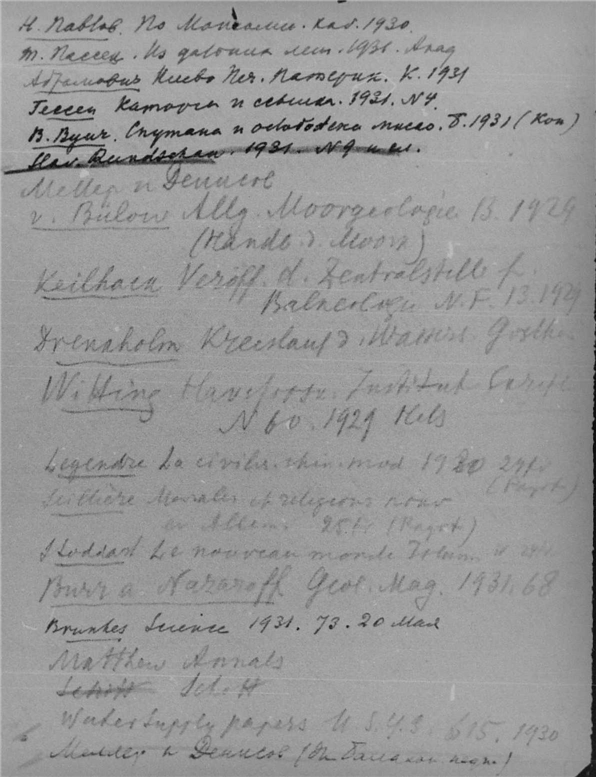 Н. Павлов. По Монголии. 1930.
Т. Пассек. Из дальних лет. 1931. Акад
Абрамович Киево Печ. Патерик. К. 1931
Гессен Каторга и ссылка. 1931. N4.
В. Вуич. Спутана и ослобођена мисао. Б. 1931 (Кон)
Slav. Rundschau. 1931. N9 и сл.
Меллер и Денисов
v. Bülow Allg. Moorgeologie B. 1929
(Handb. d. Moork)
Keilhack Veröff. d. Zentralstelle f.
Balneologie N.F. 13. 1929
Drenkholm Kreislauf d. Wassers.
Witting Havsforskn. Institut Skrift
N 60. 1929 Hels
Legendre La civilis. chin. mod 1930 24fr
(Payot)
Seillière Morales et religions nouv
en Allem. 25fr (Payot)
Stoddard Le nouveau monde
Burr a Nazaroff Geol. Mag. 1931. 68
Brunhes Science 1931. 73. 20 Мая
Matthew Annals
Schott Schott
Water Supply papers U.S.G.S. 615. 1930
Меллер и Денисов